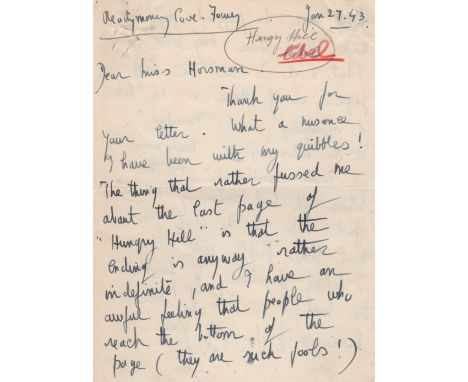 Readymoney Cove. Fowey
Jan 27. 43
Hungry Hill
Libel
Dear Miss Horsman.
Thank you for
your letter. What a nuisance
I have been with my quibbles!
The thing that rather fussed me
about the last page of
"Hungry Hill" is that the
ending is anyway rather
indefinite, and I have an
awful feeling that people who
reach the bottom of the
page (they are such fools!)